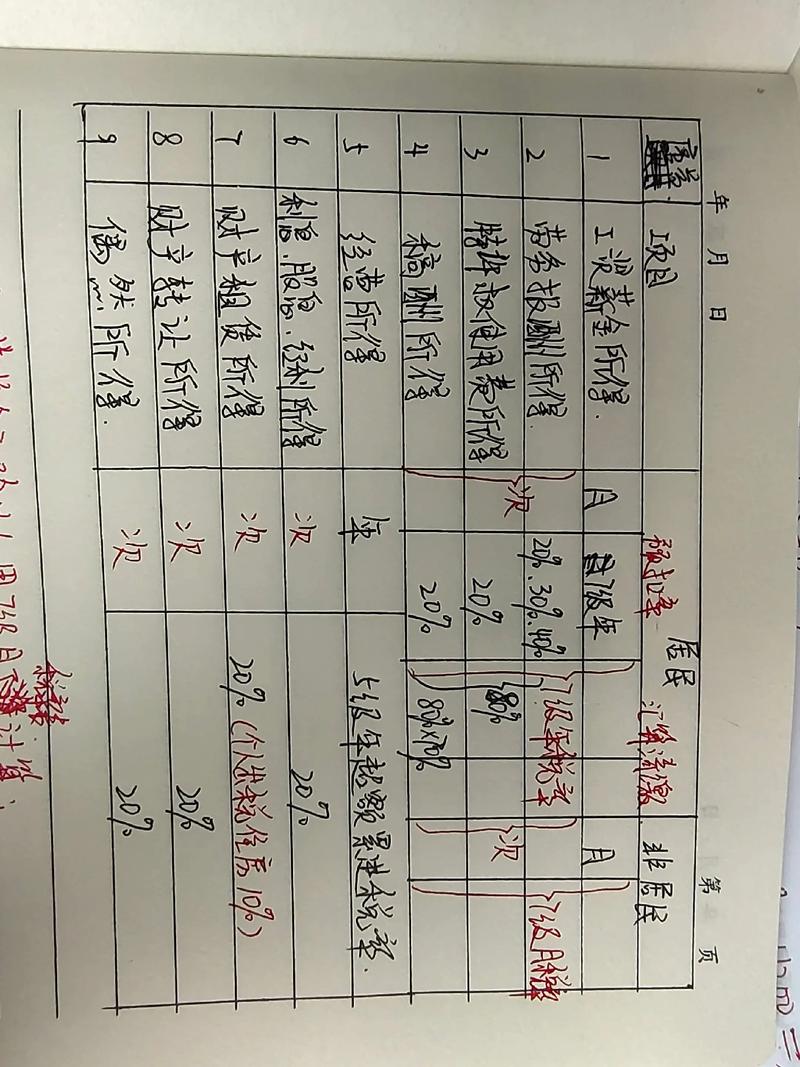 年 月 日 第 页
序号 项目 居民 非居民
预扣率 汇算清缴
1 工资薪金所得. 月 7级年 月
2 劳务报酬所得. 20%.30%.40%
3 特许权使用费所得 次 20% 80% 7级年税率 次 7级月税率
4 稿酬所得 20% 80%×70%
5 经营所得 年 5级年超额累进税率.
6 利息.股息.红利所得 次 20%
7 财产租赁所得 次 20%(个人出租住房10%)
8 财产转让所得 次 20%
9 偶然所得. 次 20%